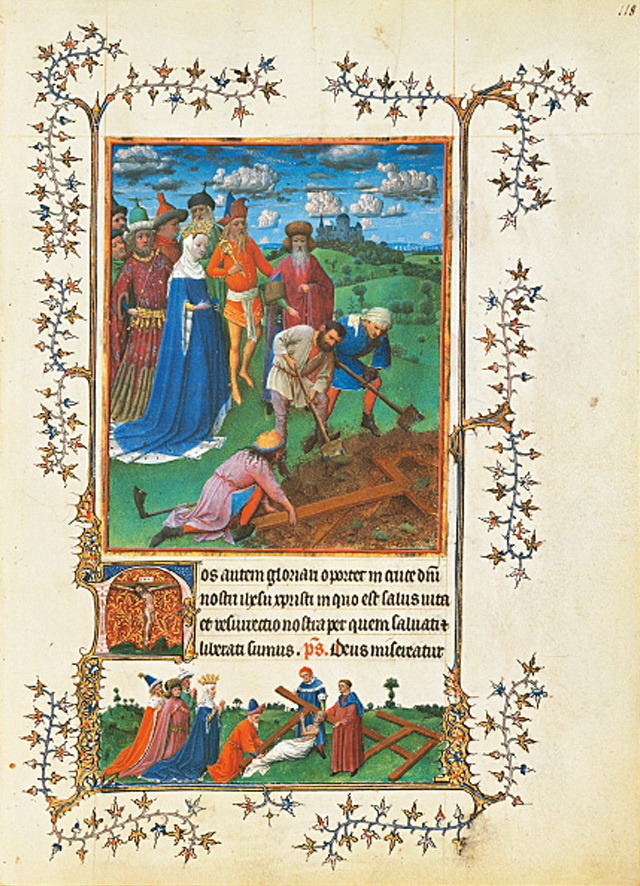 118
Nos autem gloriari oportet in cruce dñi
nostri ihesu xpristi in quo est salus uita
et resurectio nostra per quem saluati ⁊
liberati sumus. p̄s. Deus misereatur